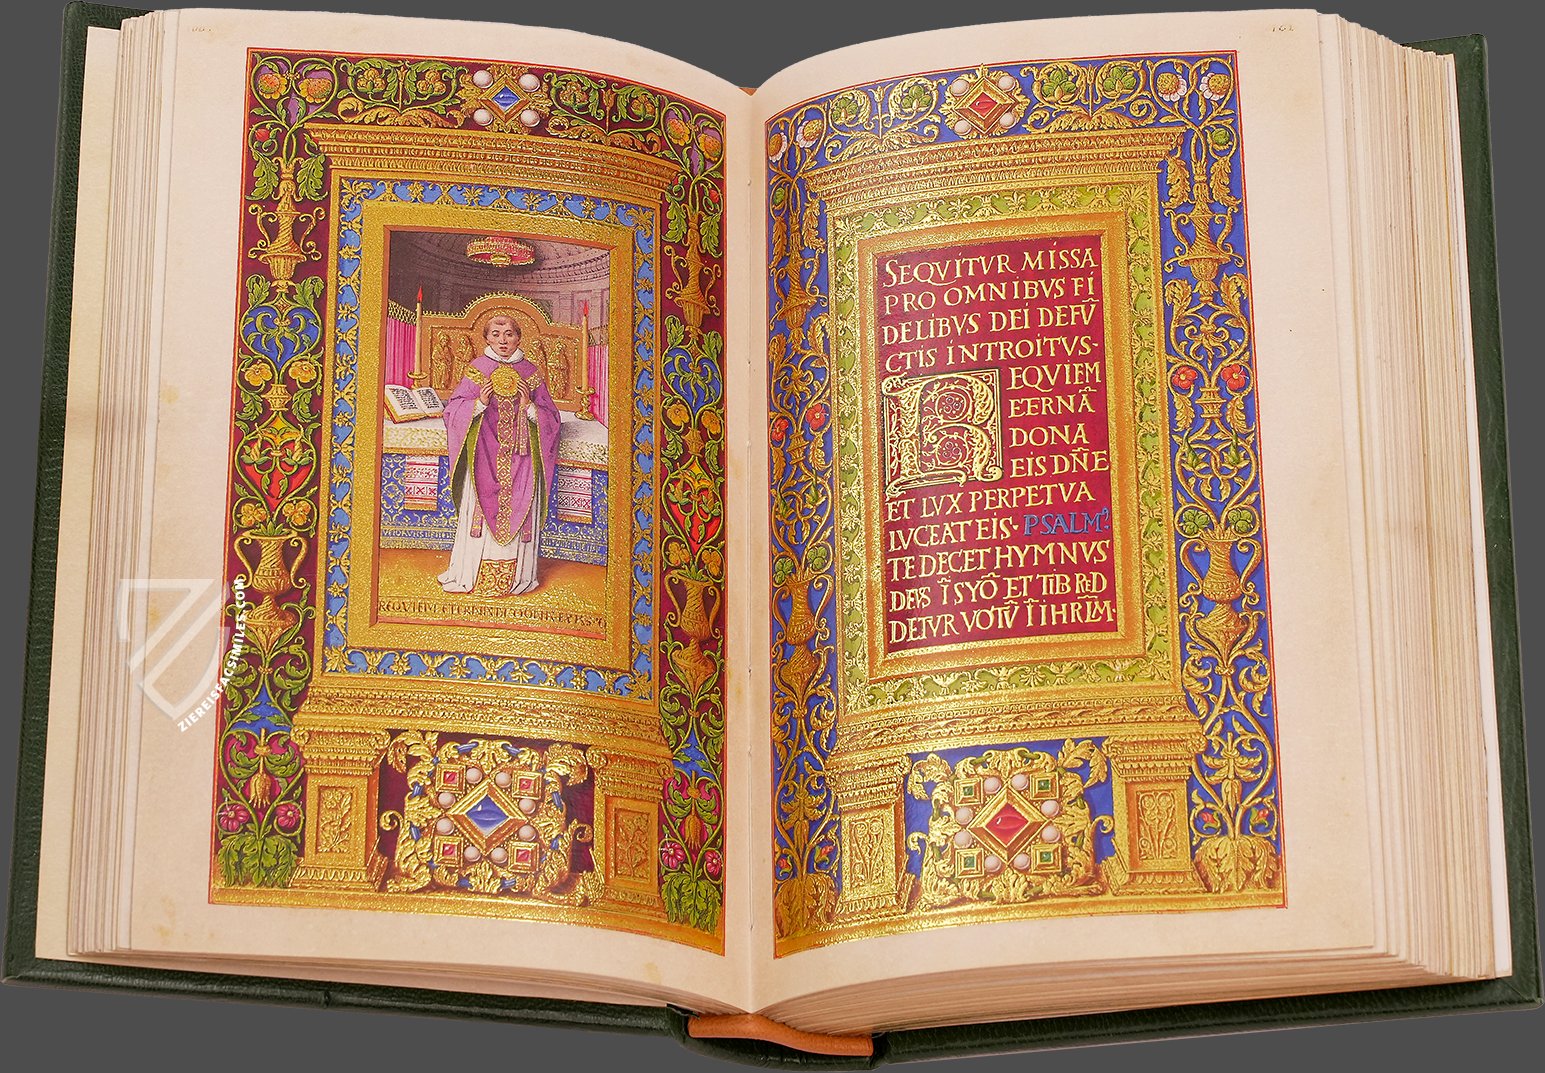 SEQVITVR MISSA
PRO OMNIBVS FI
DELIBVS DEI DEFV̄
CTIS INTROITVS·
REQVIEM
EERNĀ
DONA
EIS DN̄E
ET LVX PERPETVA
LVCEAT EIS· PSALMº
TE DECET HYMNVS
DEVS ĪSYŌ ET TIB RED
DETVR VOTV̄ ĪIHRLM̄·
ZIEREISFACSIMILES.COM